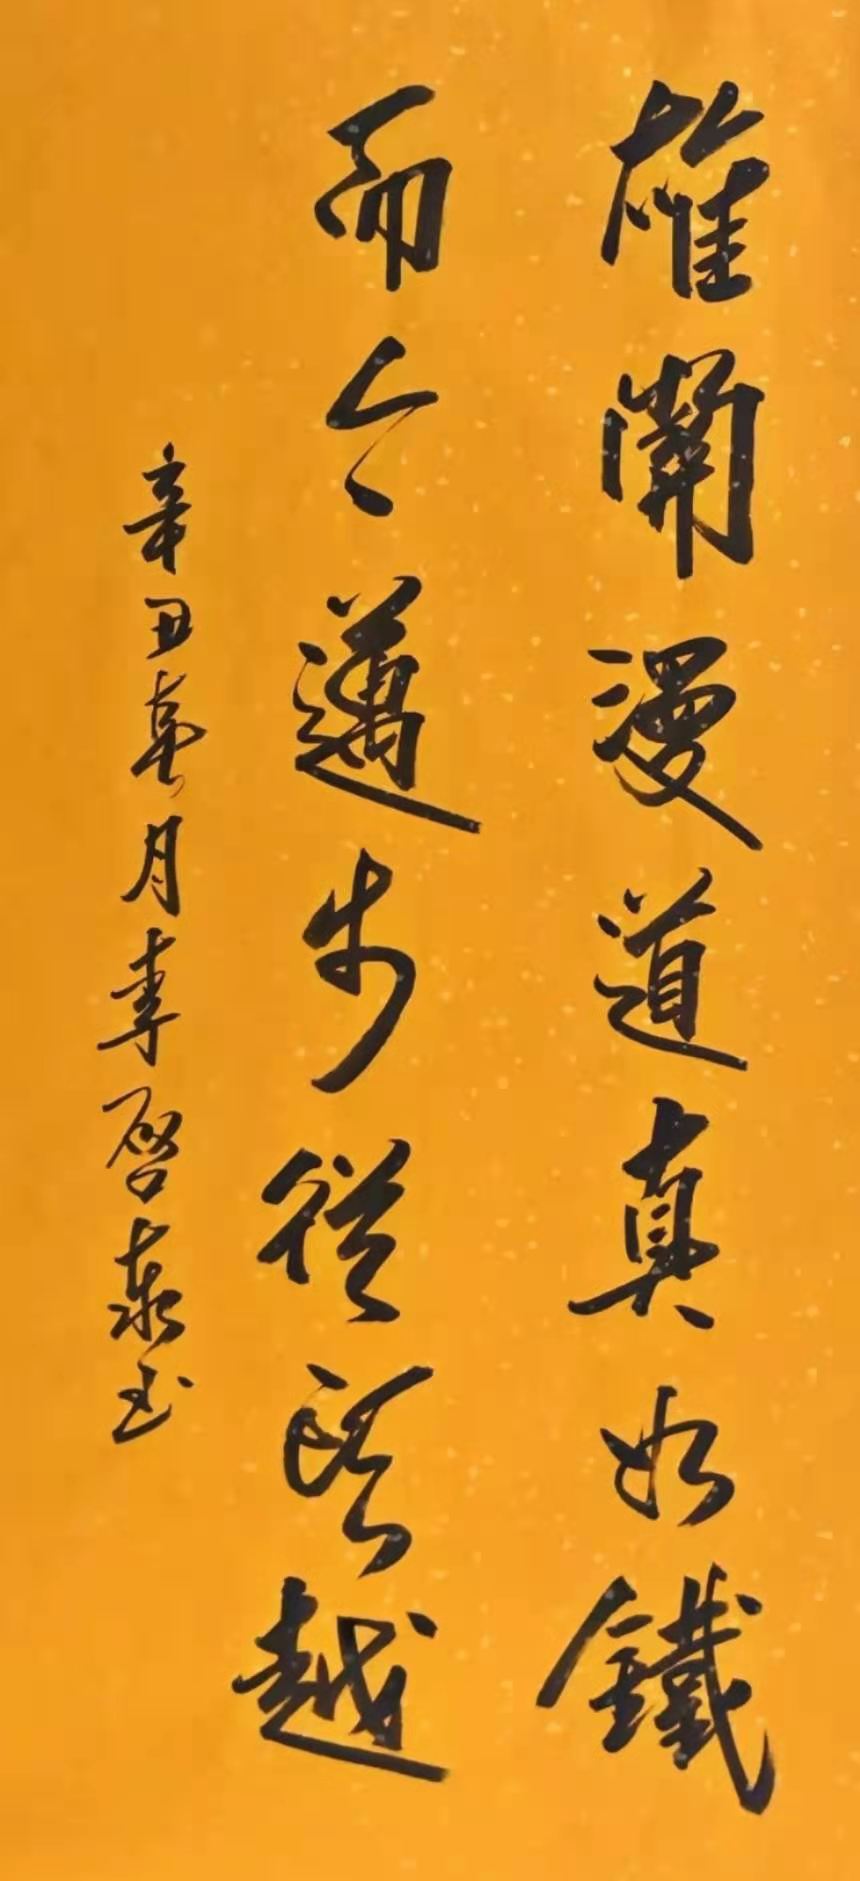 雄關漫道真如鐵
而今邁步從頭越
辛丑春月李啓泰书